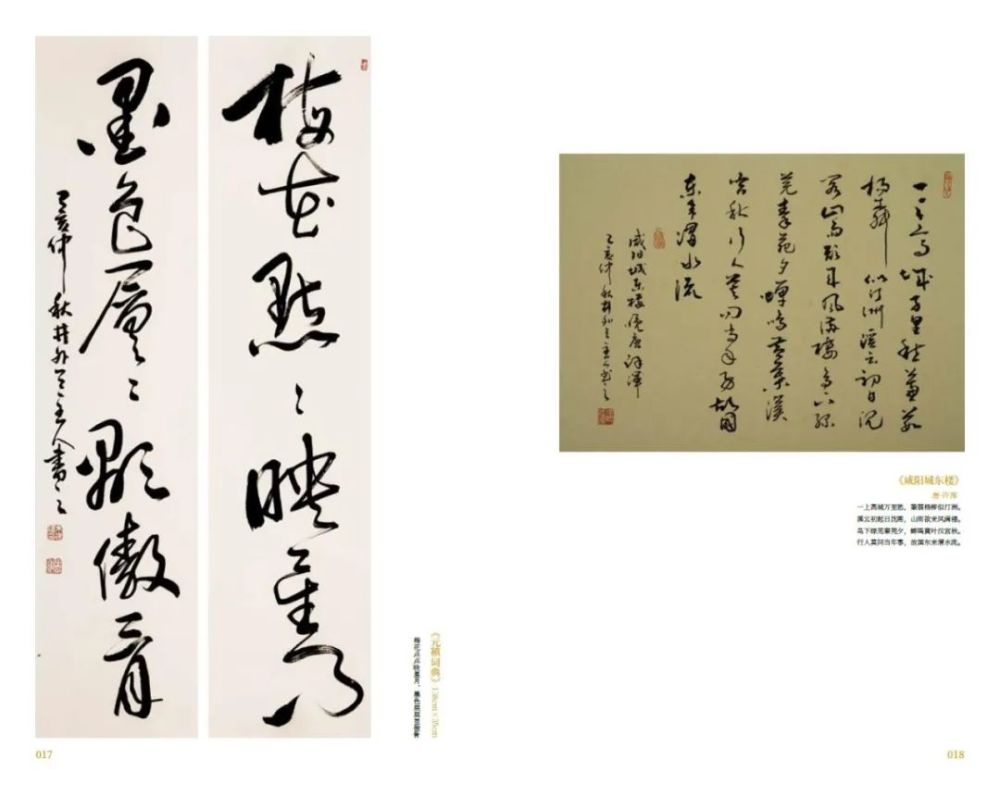 梅花點々映星月
墨色層々顯傲骨
己亥仲秋井外天主人書之
《元稹词典》138cm×35cm
梅花点点映星月,墨色层层显傲骨
017
一上高城万里愁蒹葭
楊柳似汀洲溪云初日沉
閣山雨欲来風滿樓鳥下绿
芜秦苑夕蝉鳴黄葉漢
宫秋行人莫问当年事故國
东来渭水流
咸阳城东楼晚唐许浑
己亥仲秋井外天主人書之
《咸阳城东楼》
唐·许浑
一上高城万里愁,蒹葭杨柳似汀洲。
溪云初起日沉阁,山雨欲来风满楼。
鸟下绿芜秦苑夕,蝉鸣黄叶汉宫秋。
行人莫问当年事,故国东来渭水流。
018